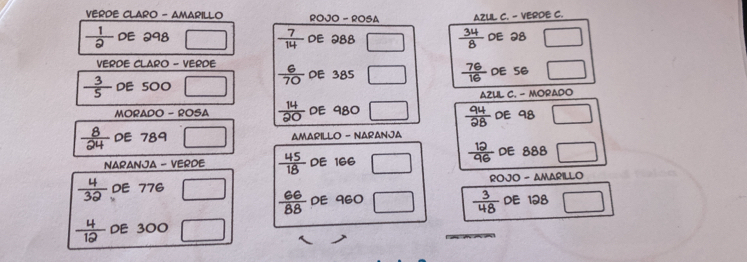 VERDE CLARO - AMARILLO
1/2 DE 298
VERDE CLARO - VERDE
3/5 DE 500
MORADO - ROSA
8/24 DE 789
NARANJA - VERDE
4/32 DE 776
4/12 DE 300
ROJO - ROSA
7/14 DE 288
6/70 DE 385
14/20 DE 980
AMARILLO - NARANJA
45/18 DE 166
66/88 DE 960
AZUL C. - VERDE C.
34/8 DE 28
76/16 DE 56
AZUL C. - MORADO
94/28 DE 98
12/96 DE 888
ROJO - AMARILLO
3/48 DE 128